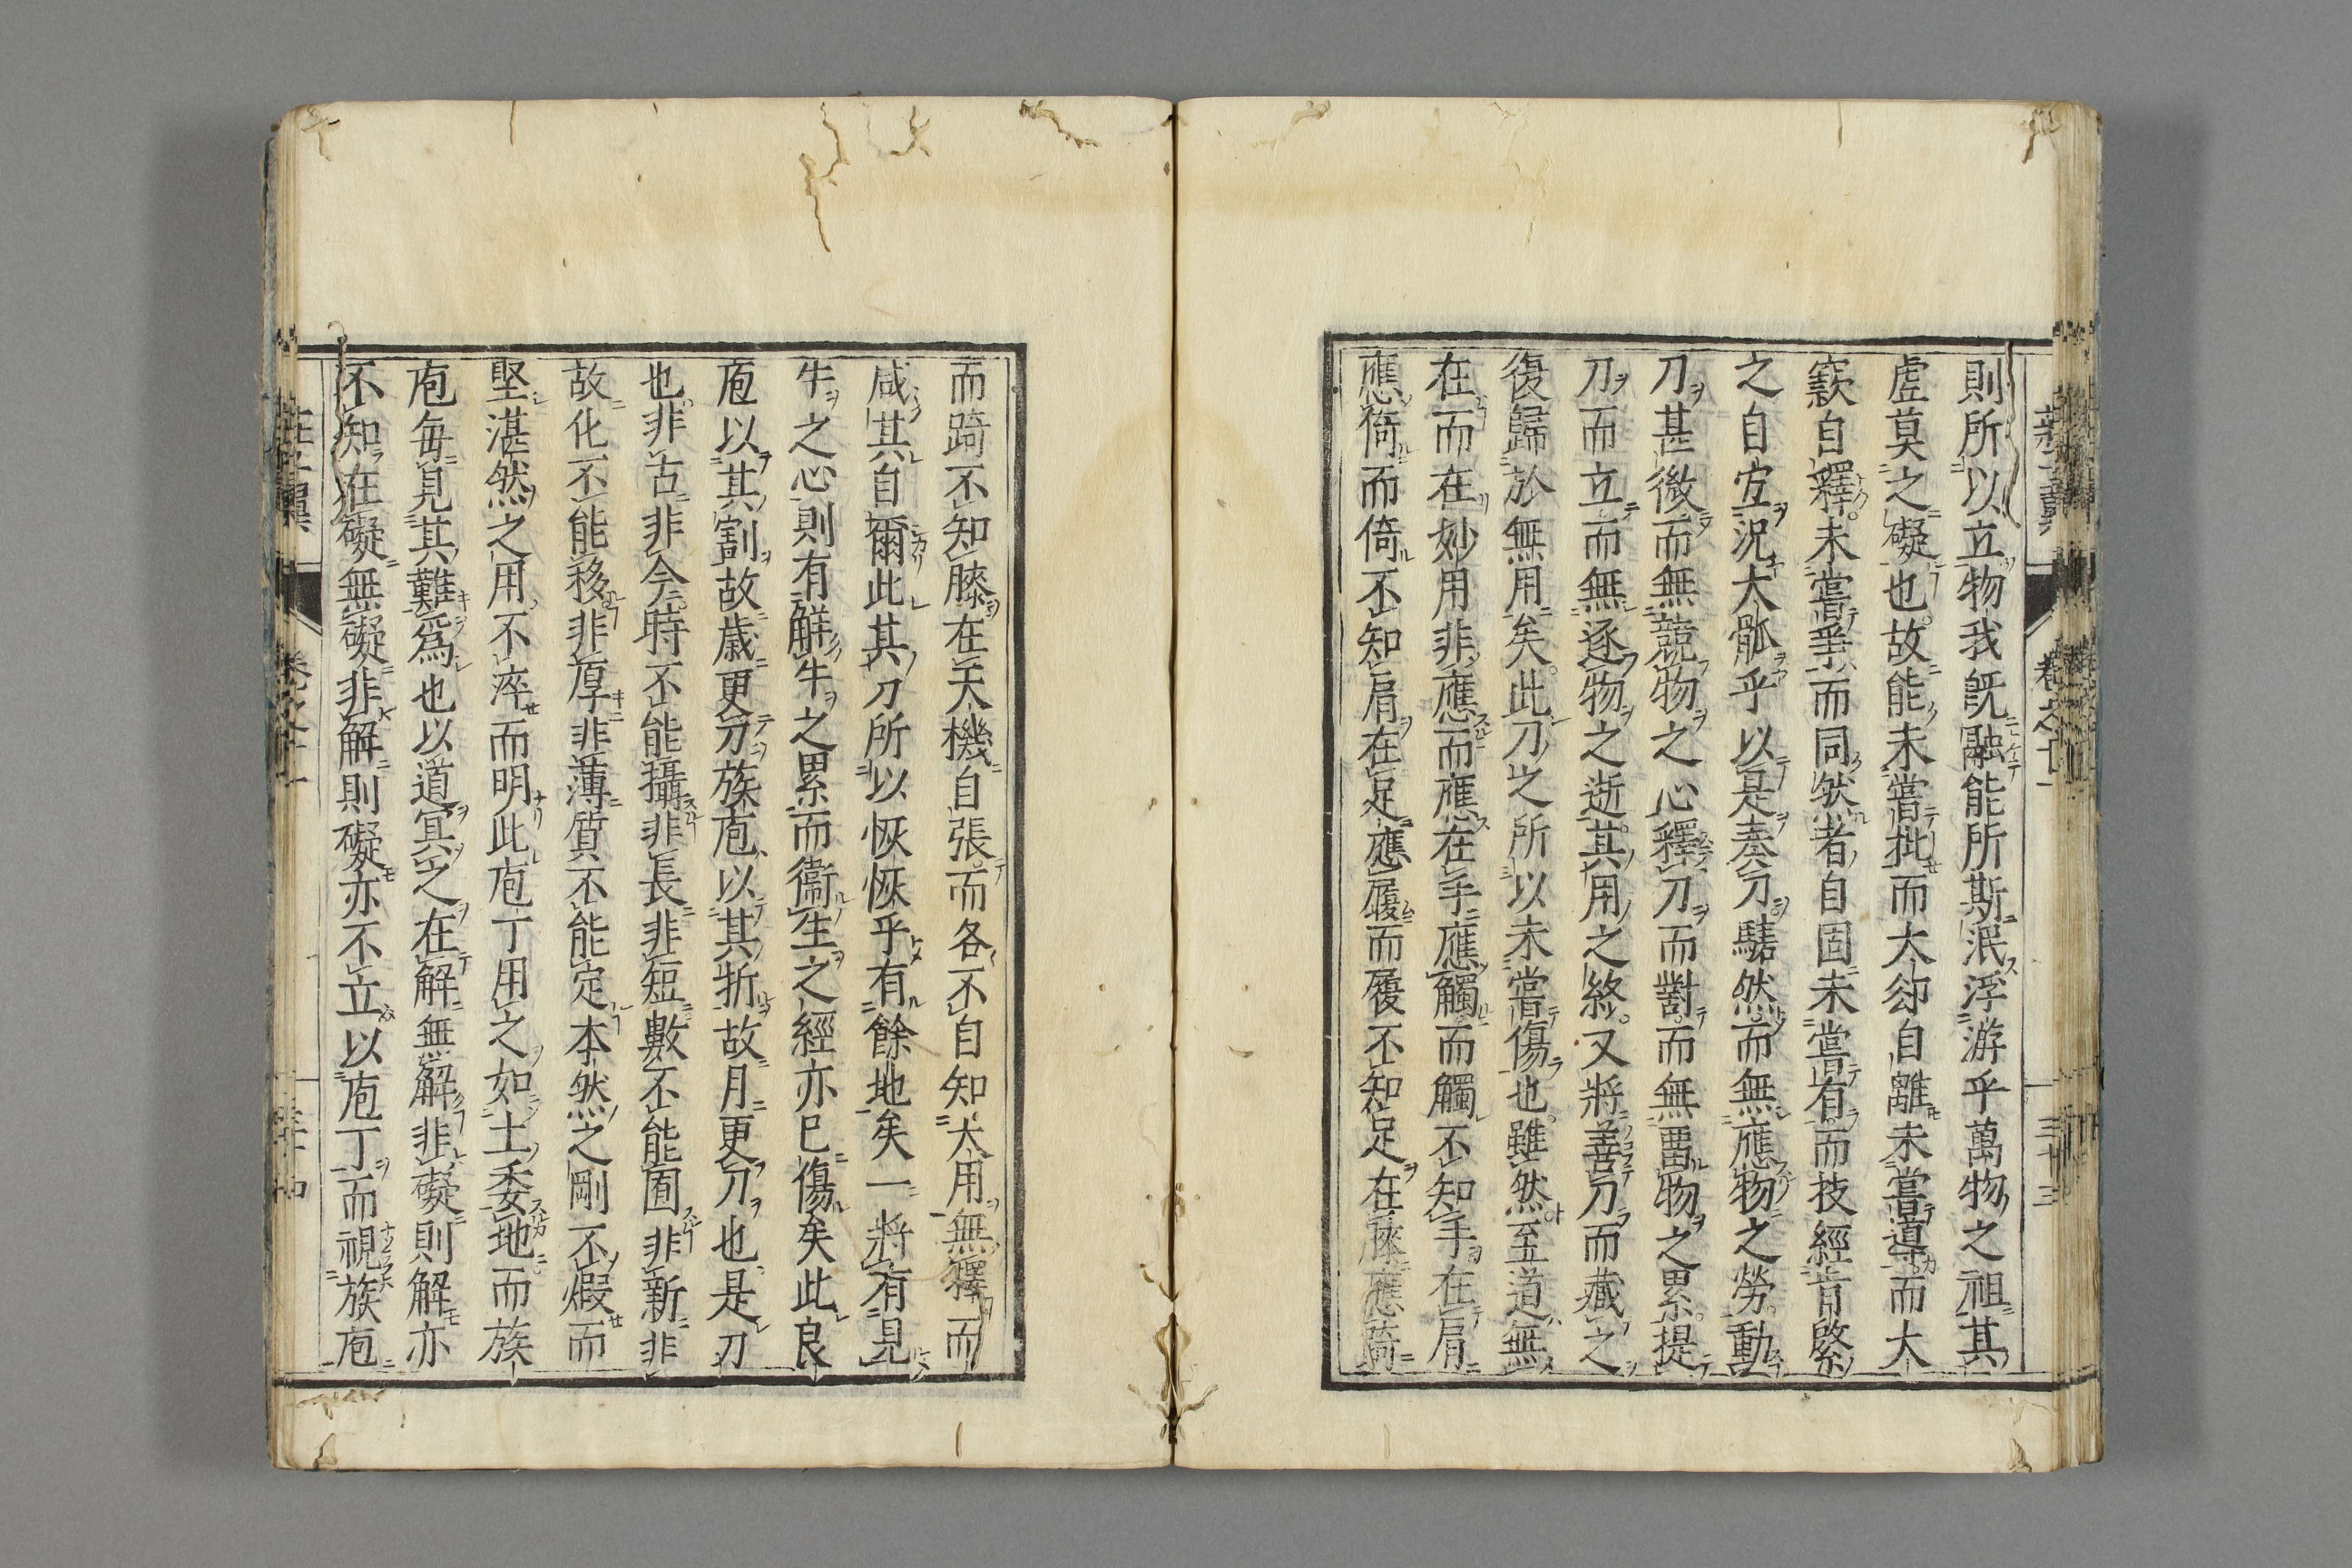 卷之十一
三十三
則所以立物我既融能所斯泯浮游乎萬物之祖其
虚莫之礙也故能未嘗批而大郤自離未嘗導而大
窾自釋未嘗乖而同然者自固未嘗有而技經肯綮
之自宜況大軱乎以是奏刀騞然而無應物之勞動
刀甚微而無競物之心釋刀而對而無畱物之累提
刀而立而無逐物之逝其用之終又將善刀而藏之
復歸於無用矣此刀之所以未嘗傷也雖然至道無
在而在妙用非應而應在手應觸而觸不知手在肩
應倚而倚不知肩在足應履而履不知足在膝應踦
而踦不知膝在天機自張而各不自知大用無擇而
咸其自爾此其刀所以恢恢乎有餘地矣一將有見
牛之心則有解牛之累而衞生之經亦已傷矣此良
庖以其割故歳更刀族庖以其折故月更刀也是刀
也非古非今時不能攝非長非短數不能囿非新非
故化不能移非厚非薄質不能定本然之剛不煆而
堅湛然之用不淬而明此庖丁用之如土委地而族
庖毎見其難爲也以道冥之在解無解非礙則解亦
不知在礙無礙非解則礙亦不立以庖丁而視族庖
莊子翼